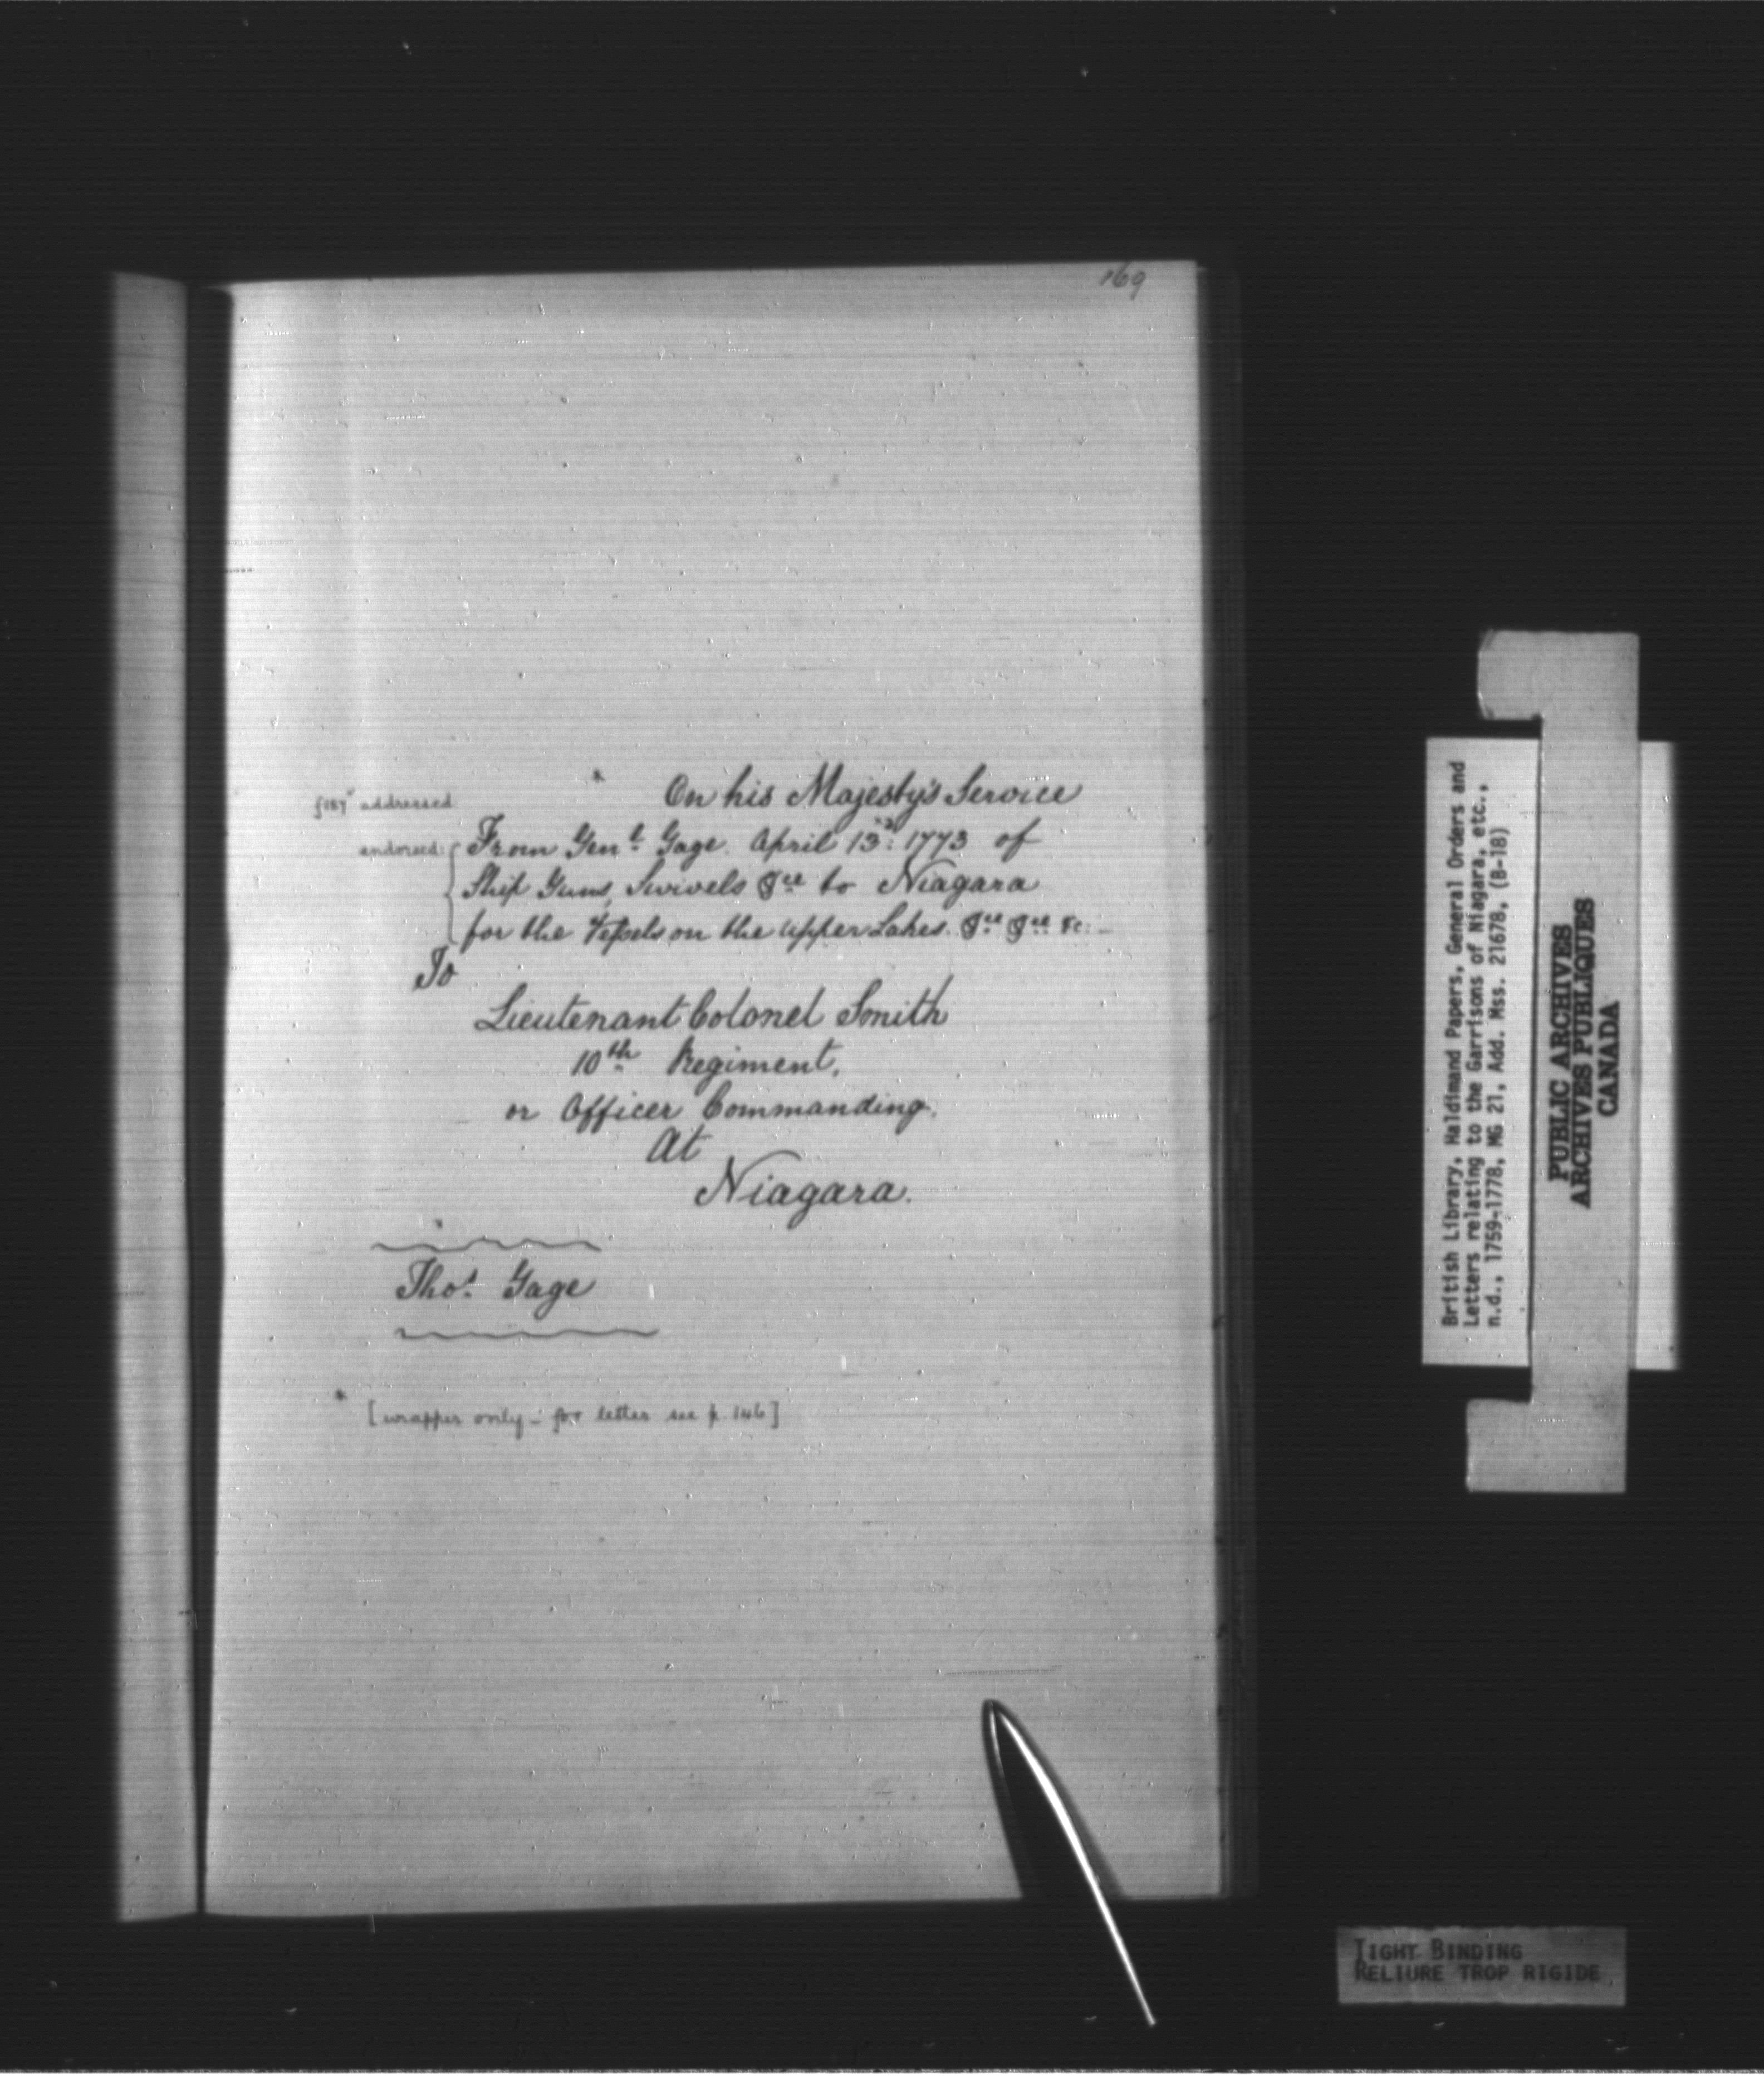 169
* On his Majesty's Service
addressed
endorsed: From Genl. Gage. April 13: 1773 of
Ship Guns, Swivels &ca to Niagara
for the Vessels on the Upper Lakes. &ca &ca &c: –
To
Lieutenant Colonel Smith
10th Regiment,
or Officer Commanding.
At
Niagara.
Thos. Gage
* [wrapper only – for letter see p. 146]
British Library, Haldimand Papers, General Orders and
Letters relating to the Garrisons of Niagara, etc.,
n.d., 1759-1778, MG 21, Add. Mss. 21678, (B-18)
PUBLIC ARCHIVES
ARCHIVES PUBLIQUES
CANADA
TIGHT BINDING
RELIURE TROP RIGIDE